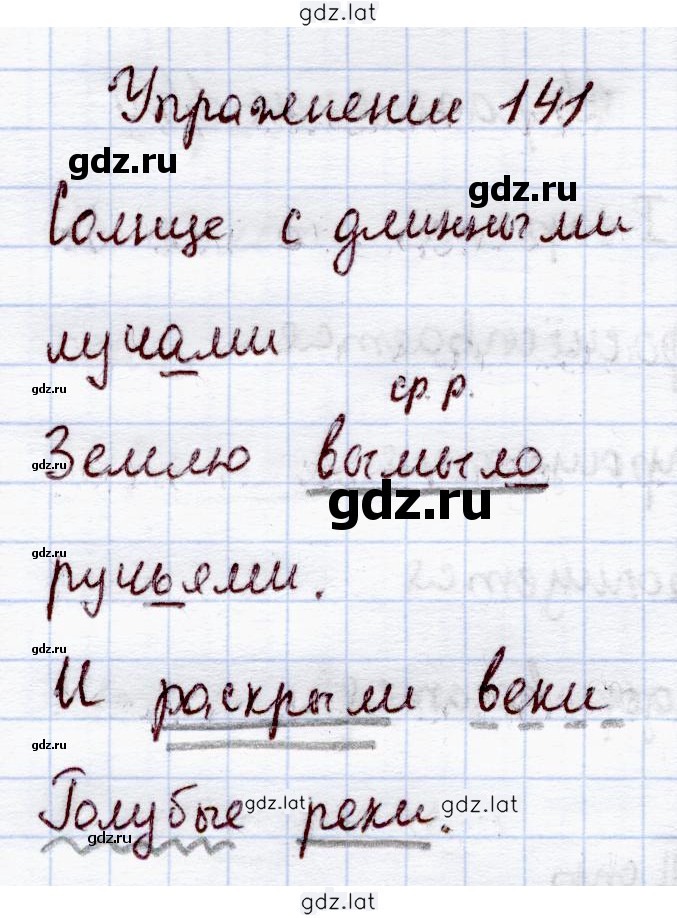 gdz.lat
Упражнение 141
gdz.ru
gdz.ru
Солнце с длинными
лучами
gdz.ru
ср. р.
Землю вымыло
gdz.ru
gdz.ru
gdz.ru
ручьями.
gdz.ru
И раскрыли веки
gdz.ru
Голубые реки.
gdz.lat
gdz.lat
gdz.ru
gdz.lat